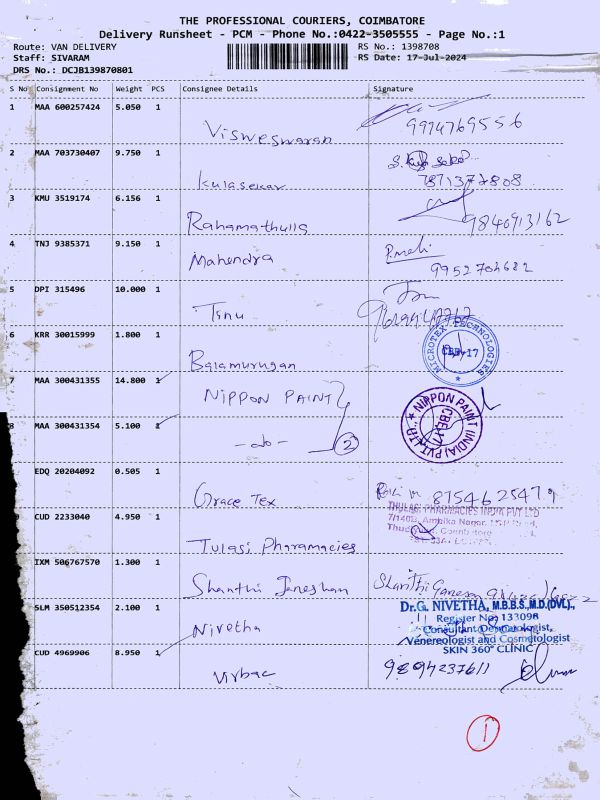 THE PROFESSIONAL COURIERS, COIMBATORE
Delivery Runsheet - PCM - Phone No.:0422-3505555 - Page No.:1
Route: VAN DELIVERY RS No.: 1398708
Staff: SIVARAM RS Date: 17-Jul-2024
DRS No.: DCJB139870801
S No Consignment No Weight PCS Consignee Details Signature
1 MAA 600257424 5.050 1
Visweswaran 9994769556
2 MAA 703730407 9.750 1
Kulasekar 7871377808
3 KMU 3519174 6.156 1
Rahamathulla 9840913162
4 TNJ 9385371 9.150 1
Mahendra 9952704682
5 DPI 315496 10.000 1
6 KRR 30015999 1.800 1
Balamurugan
MICROTEX TECHNOLOGIES
CBE-17
7 MAA 300431355 14.800 1
NIPPON PAINT
NIPPON PAINT (INDIA) PVT.LTD.,
8 MAA 300431354 5.100 1
-do- 2
EDQ 20204092 0.505 1
Grace Tex
CUD 2233040 4.950 1
THULASI PHARMACIES INDIA PVT LTD
Tulasi Pharamacies
IXM 506767570 1.300 1
Shanthi Jeneshan
SLM 350512354 2.100 1
Nivetha
Dr.G. NIVETHA, M.B.B.S.,M.D.(DVL).,
Register No: 133098
Consultant Dermatologist,
Venereologist and Cosmetologist
SKIN 360° CLINIC
CUD 4969906 8.950 1
Virbac 9894237611
1